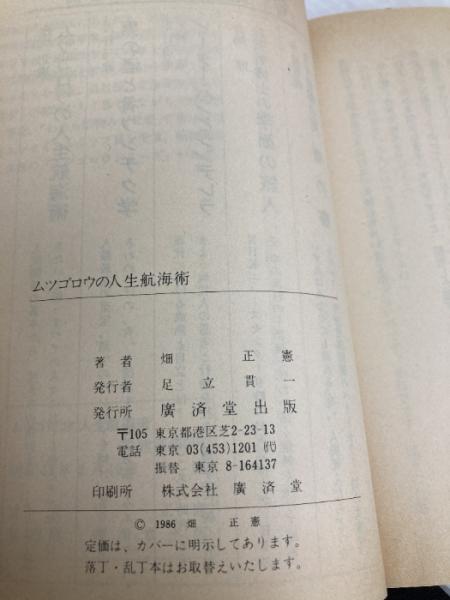 ムツゴロウの人生航海術
著者 畑 正憲
発行者 足立貫一
発行所 廣済堂出版
〒105 東京都港区芝2-23-13
電話 東京 03(453)1201 (代)
振替 東京 8-164137
印刷所 株式会社 廣済堂
© 1986 畑 正憲
定価は、カバーに明示してあります。
落丁・乱丁本はお取替えいたします。